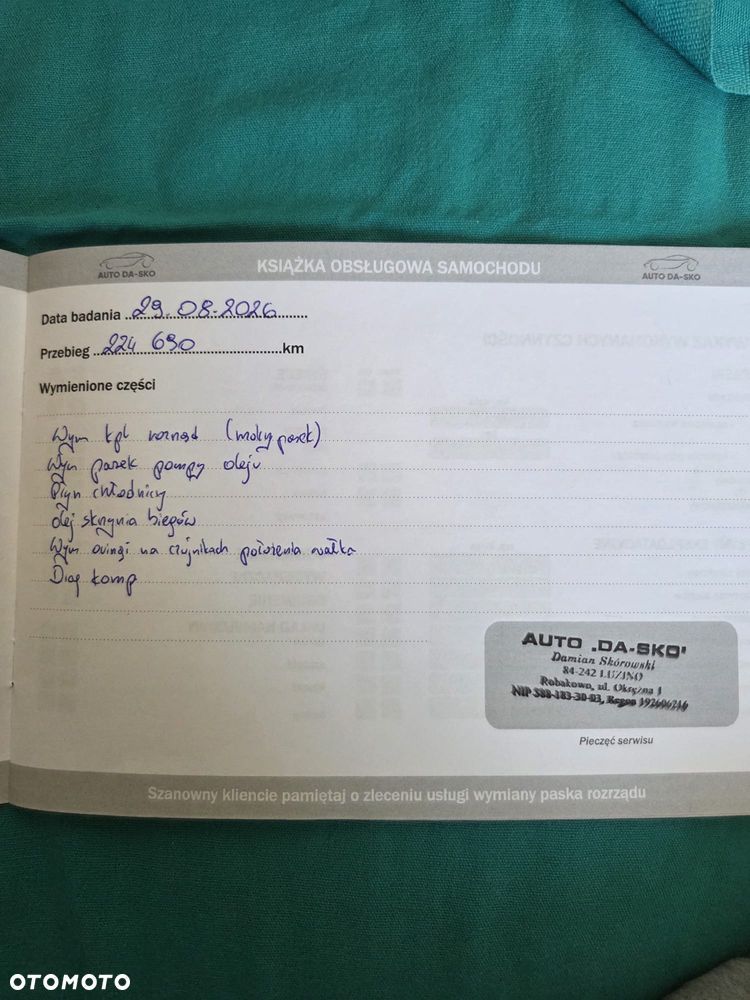 AUTO DA-SKO
KSIĄŻKA OBSŁUGOWA SAMOCHODU
AUTO DA-SKO
Data badania 29.08.2026
Przebieg 224 690 km
Wymienione części
Wym kpl rozrząd (mokry pasek)
Wym pasek pompy oleju
Płyn chłodnicy
olej skrzynia biegów
Wym oringi na czujnikach położenia wałka
Diag komp
AUTO „DA-SKO"
Damian Skórowski
84-242 LUZINO
Robakowo, ul. Okrężna 1
NIP 588-183-30-03, Regon 192606216
Pieczęć serwisu
Szanowny kliencie pamiętaj o zleceniu usługi wymiany paska rozrządu
OTOMOTO